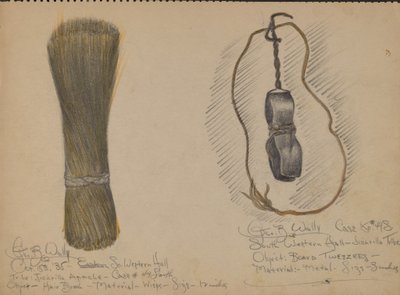 Geo. B. Wally
Oct. 28. 35 - Eastern So. Western Hall
Tribe: Jicarilla Apache - Case # 48 South
Object - Hair Brush - Material - Wisps - Size - 12 inches
Geo. B. Wally Case No # 48
South Western Hall - Jicarilla Tribe
Object Beard Tweezers -
Material: - Metal - Size - 3 inches